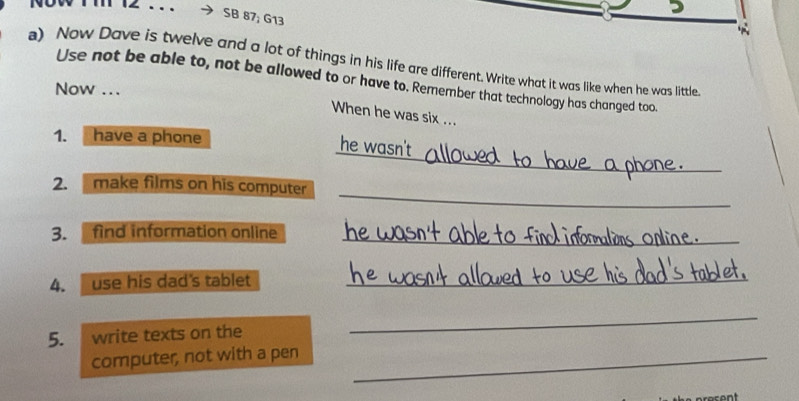 12 ... → SB 87; G13
a) Now Dave is twelve and a lot of things in his life are different. Write what it was like when he was little.
Use not be able to, not be allowed to or have to. Remember that technology has changed too.
Now ...
When he was six ...
1. have a phone
he wasn't allowed to have a phone.
2. make films on his computer
3. find information online
he wasn't able to find informations online.
4. use his dad's tablet
he wasn't allowed to use his dad's tablet.
5. write texts on the
computer, not with a pen